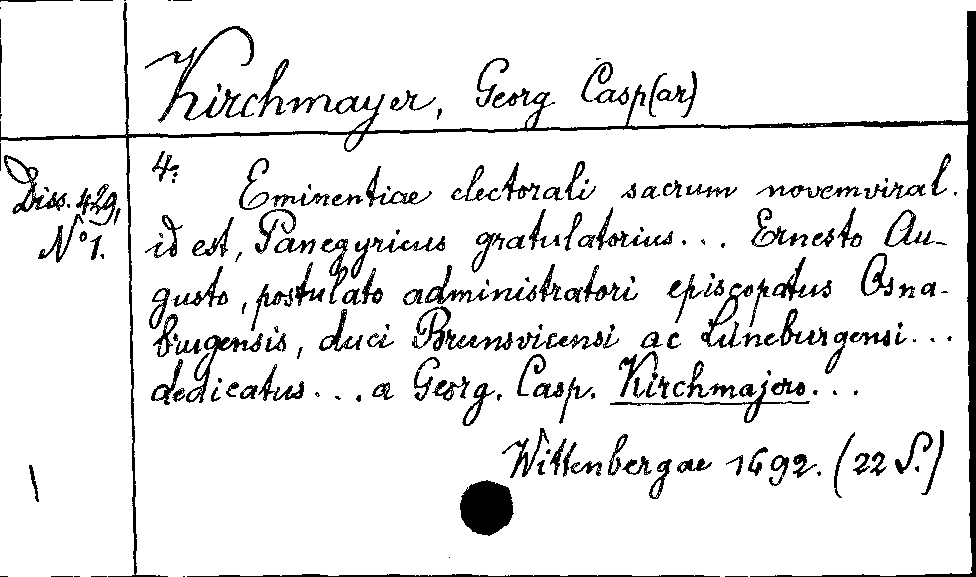 Kirchmayer, Georg Casp(ar)
Diss. 429,
N° 1.
4°
Eminentiae electorali sacrum novemviral.
id est, Panegyricus gratulatorius... Ernesto Au-
gusto, postulato administratori episcopatus Osna-
brugensis, duci Brunsvicensi ac Lüneburgensi...
dedicatus... a Georg. Casp. Kirchmajero...
Wittenbergae 1692. (22 S.)